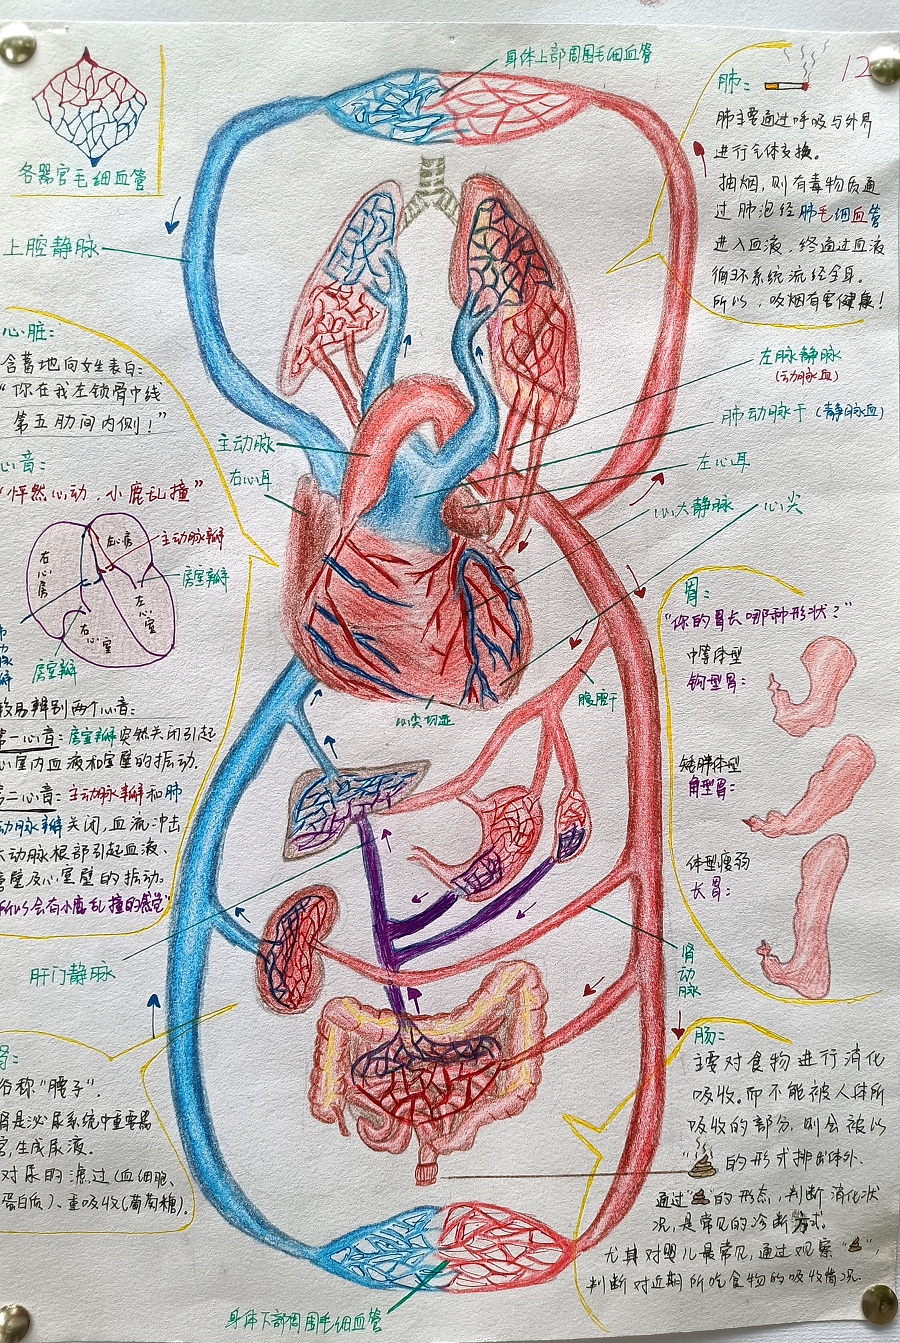 身体上部周围毛细血管
12
各器官毛细血管
上腔静脉
肺:
肺主要通过呼吸与外界
进行气体交换。
抽烟,则有毒物质通
过肺泡经肺毛细血管
进入血液,终通过血液
循环系统流经全身。
所以,吸烟有害健康!
心脏:
含蓄地向女生表白:
“你在我左锁骨中线
第五肋间内侧!”
心音:
“怦然心动,小鹿乱撞”
主动脉瓣
房室瓣
右心房
左心房
左心室
右心室
房室瓣
动脉瓣
较易辨别两个心音:
第一心音:房室瓣突然关闭引起
心室内血液和室壁的振动.
第二心音:主动脉瓣和肺
动脉瓣关闭,血流冲击
大动脉根部引起血液、
管壁及心室壁的振动。
所以会有小鹿乱撞的感觉”
主动脉
右心耳
左肺静脉
(动脉血)
肺动脉干(静脉血)
左心耳
心大静脉
心尖
心尖切迹
腹腔干
胃:
“你的胃长哪种形状?”
中等体型
钩型胃:
矮胖体型
角型胃:
体型瘦弱
长胃:
肝门静脉
肾动脉
肾:
俗称“腰子”.
肾是泌尿系统中重要器
官,生成尿液。
对尿的滤过(血细胞、
蛋白质)、重吸收(葡萄糖).
肠:
主要对食物进行消化
吸收.而不能被人体所
吸收的部分,则会被以
的形式排出体外.
通过“ ”的形态,判断消化状
况,是常见的诊断方式.
尤其对婴儿最常见,通过观察“ ”,
判断对近期所吃食物的吸收情况.
身体下部周围毛细血管